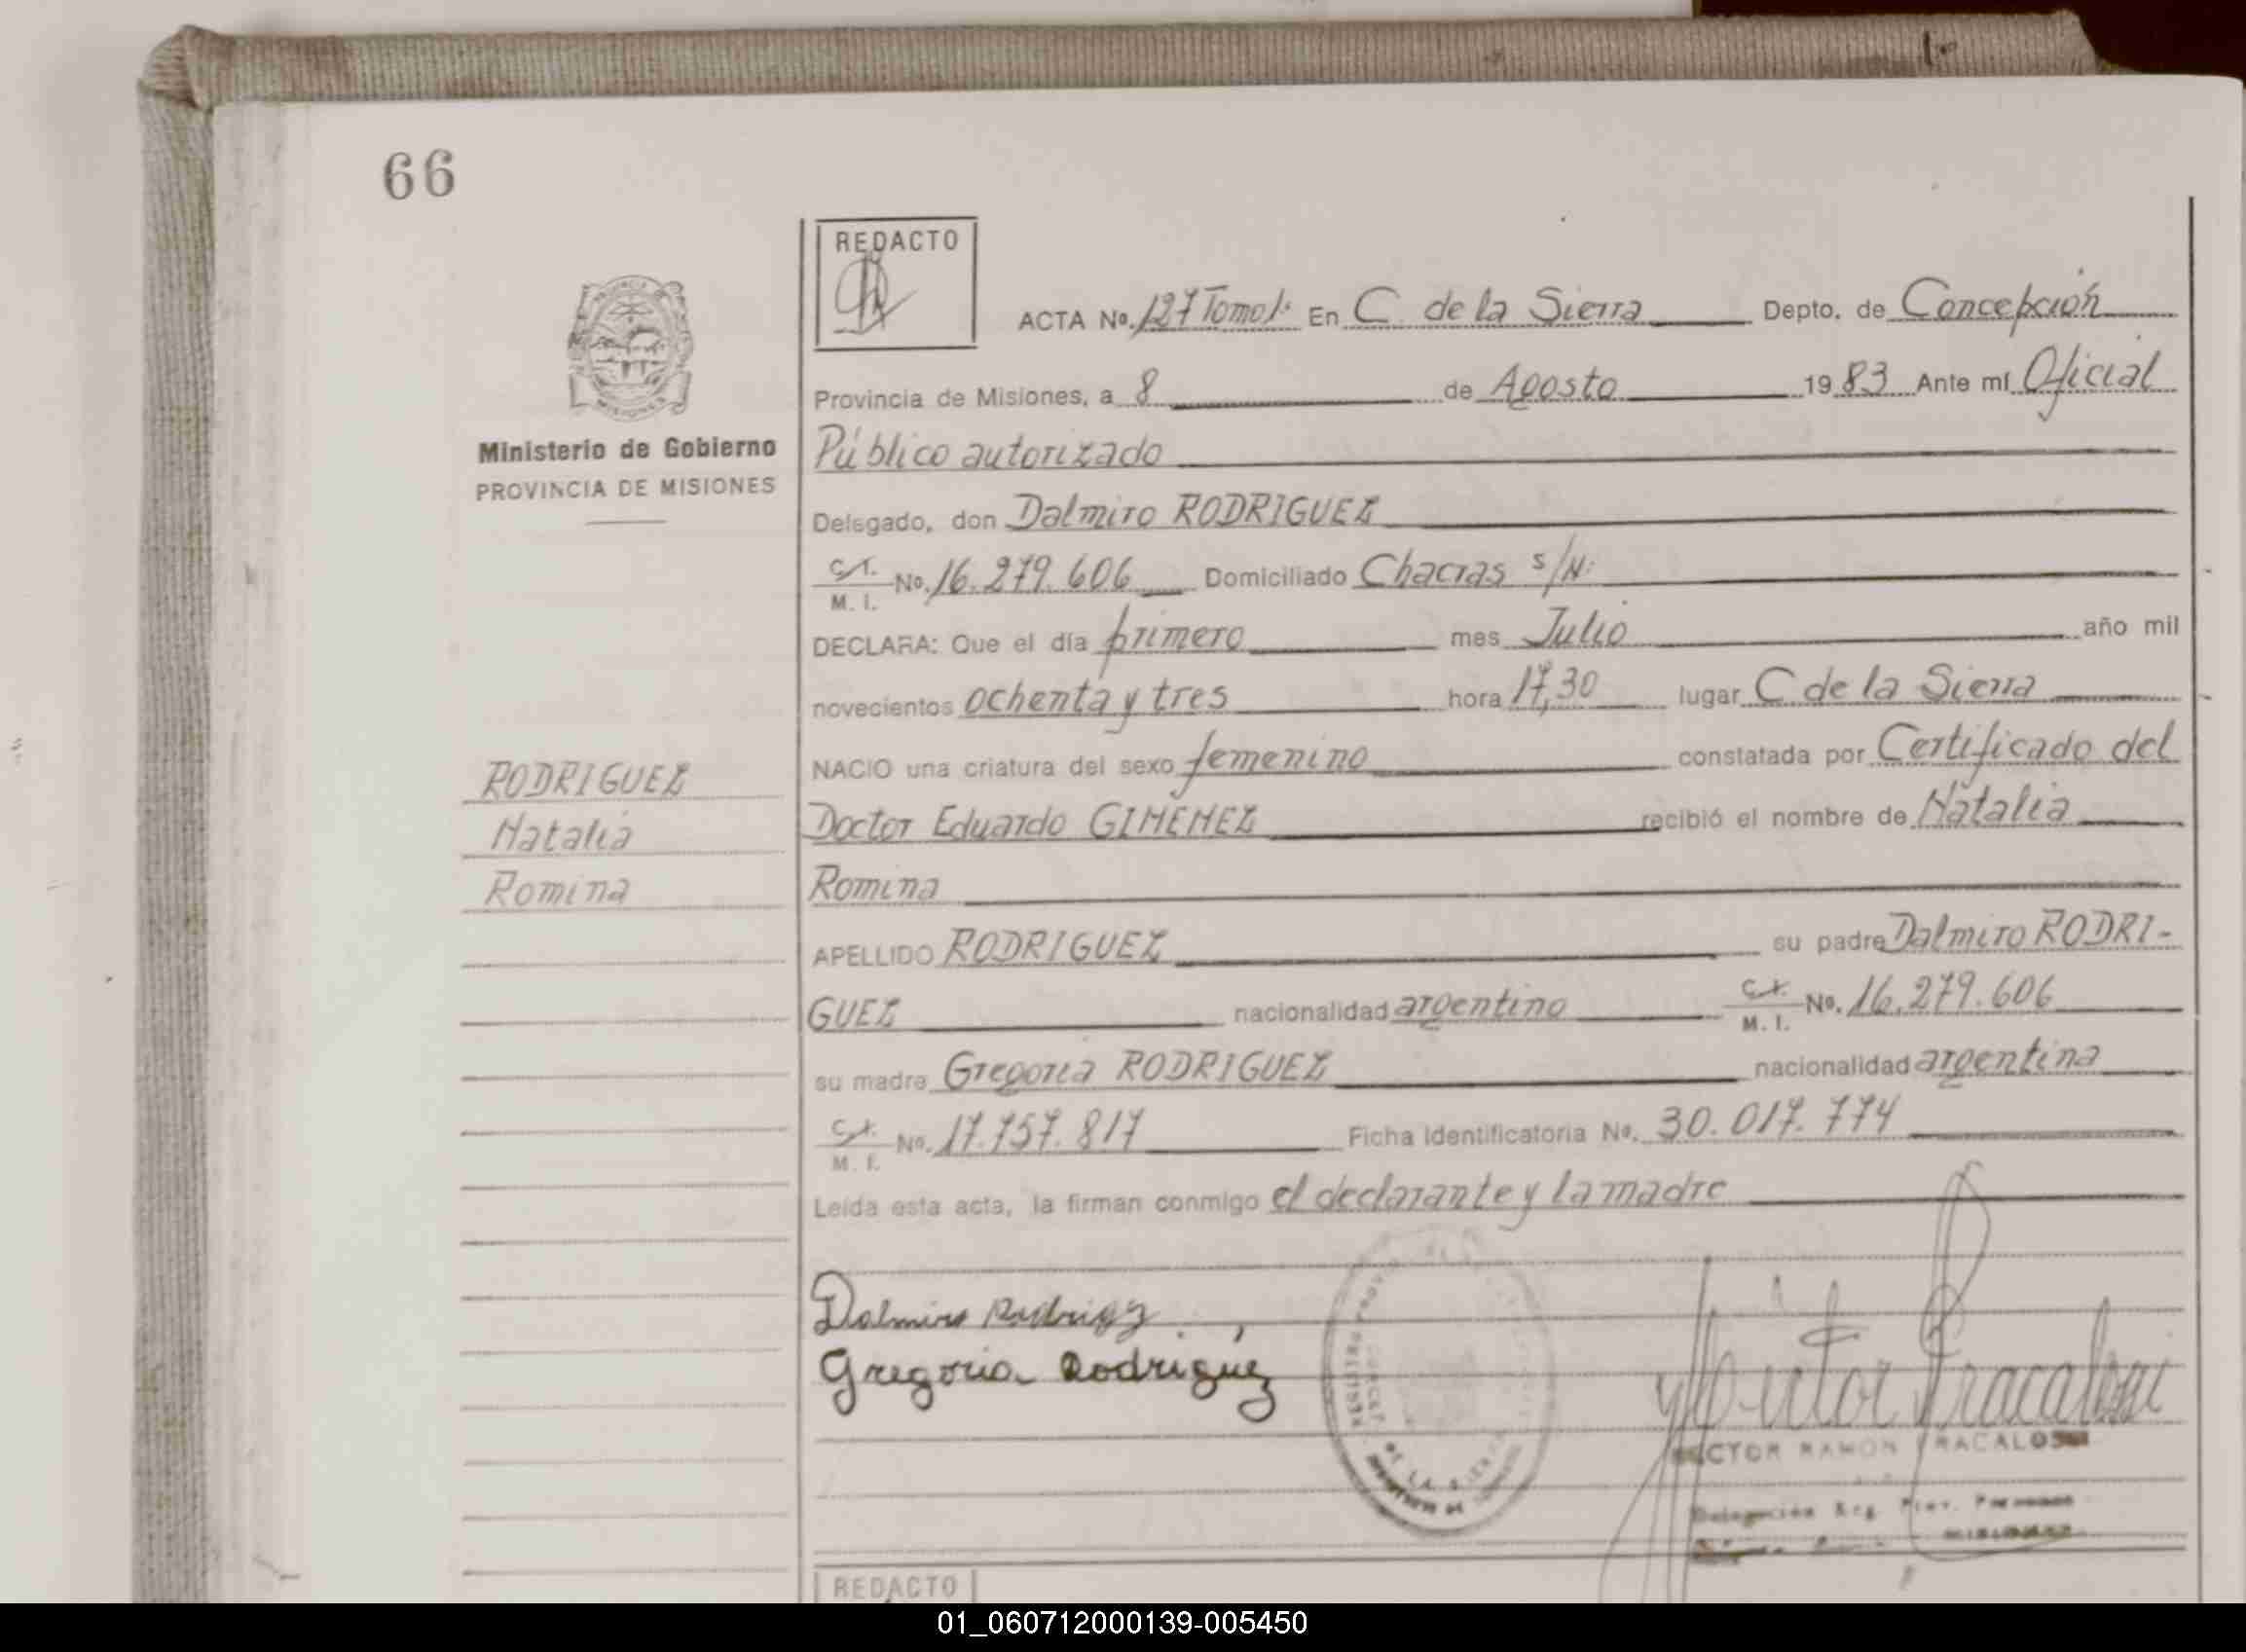 66
REDACTO
ACTA Nº. 127 Tomo 1º En C. de la Sierra Depto. de Concepción
Provincia de Misiones, a 8 de Agosto 1983 Ante mí Oficial
Ministerio de Gobierno
PROVINCIA DE MISIONES
Público autorizado
Delegado, don Dalmiro RODRIGUEZ
C.I. M. I. No. 16.279.606 Domiciliado Chacras s/N:
DECLARA: Que el día primero mes Julio año mil
novecientos ochenta y tres hora 17,30 lugar C de la Sierra
NACIO una criatura del sexo femenino constatada por Certificado del
Doctor Eduardo GIMENEZ recibió el nombre de Natalia
Romina
RODRIGUEZ
Natalia
Romina
APELLIDO RODRIGUEZ su padre Dalmiro RODRI-
GUEZ nacionalidad argentino C.I. M. I. No. 16.279.606
su madre Gregoria RODRIGUEZ nacionalidad argentina
C.I. M. I. No. 17.757.817 Ficha Identificatoria No. 30.017.774
Leída esta acta, la firman conmigo el declarante y la madre
Dalmiro Rodriguz
Gregoria Rodriguez
DE LA SIERRA
Hector Fracalossi
HECTOR RAMON FRACALOSSI
Delegación Reg. Prov. Personas
MISIONES
REDACTO
01_060712000139-005450